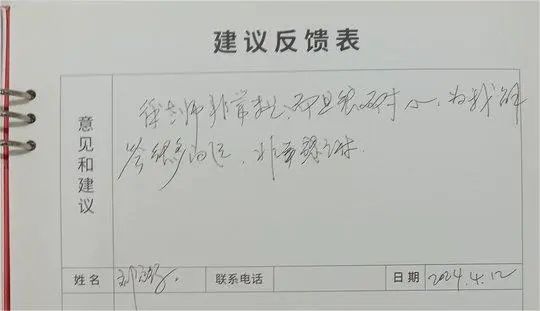 建议反馈表
意见和建议
徐老师非常好,而且很耐心,为我解
答很多问题,非常感谢.
姓名
联系电话
日期 2024.4.12